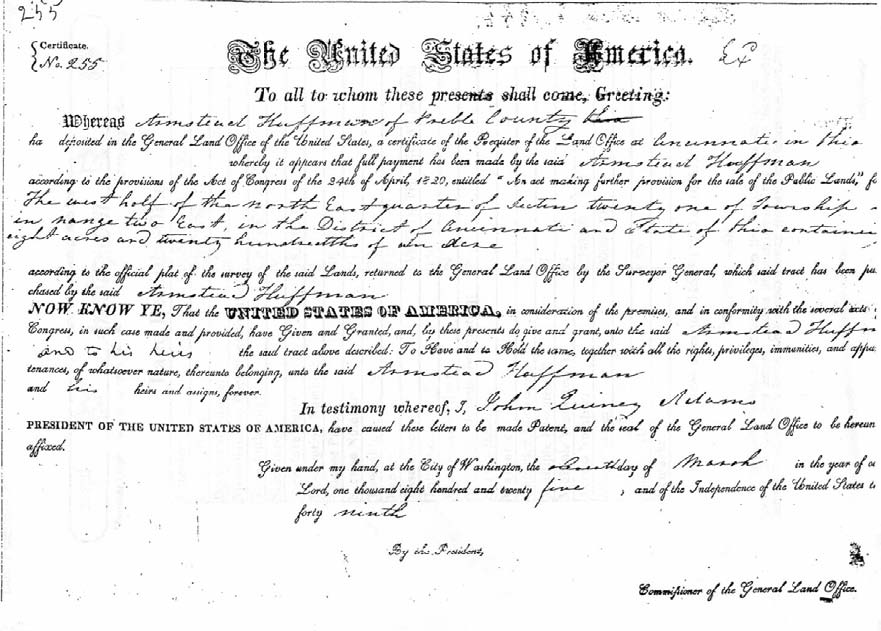 255
Certificate.
No. 255.
The United States of America.
To all to whom these presents shall come, Greeting:
Whereas Armstead Huffman of Preble County
ha deposited in the General Land Office of the United States, a certificate of the Register of the Land Office at Cincinnati in Ohio
whereby it appears that full payment has been made by the said Armstead Huffman
according to the provisions of the Act of Congress of the 24th of April, 1820, entitled "An act making further provision for the sale of the Public Lands," f
The west half of the North East quarter of Section twenty one of Township
in range two East, in the District of Cincinnati and State of Ohio containi
eight acres and twenty hundredths of an Acre
according to the official plat of the survey of the said Lands, returned to the General Land Office by the Surveyor General, which said tract has been pu
chased by the said Armstead Huffman
NOW KNOW YE, That the UNITED STATES OF AMERICA, in consideration of the premises, and in conformity with the several acts
Congress, in such case made and provided, have Given and Granted, and, by these presents do give and grant, unto the said Armstead Huffm
and to his heirs the said tract above described: To Have and to Hold the same, together with all the rights, privileges, immunities, and appu
tenances, of whatsoever nature, thereunto belonging, unto the said Armstead Huffman
and his heirs and assigns, forever.
In testimony whereof, I, John Quincy Adams
PRESIDENT OF THE UNITED STATES OF AMERICA, have caused these letters to be made Patent, and the seal of the General Land Office to be hereun
affixed.
Given under my hand, at the City of Washington, the day of March in the year of o
Lord, one thousand eight hundred and twenty five , and of the Independence of the United States t
forty ninth
By the President,
Commissioner of the General Land Office.